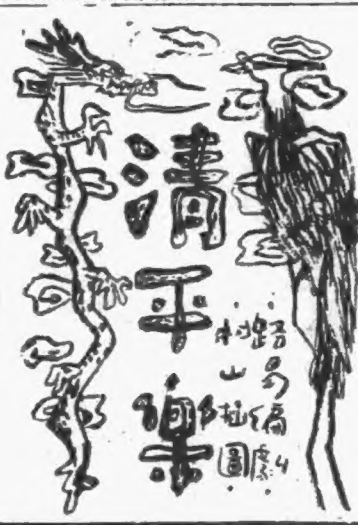 清平樂
路易編劇
山圖